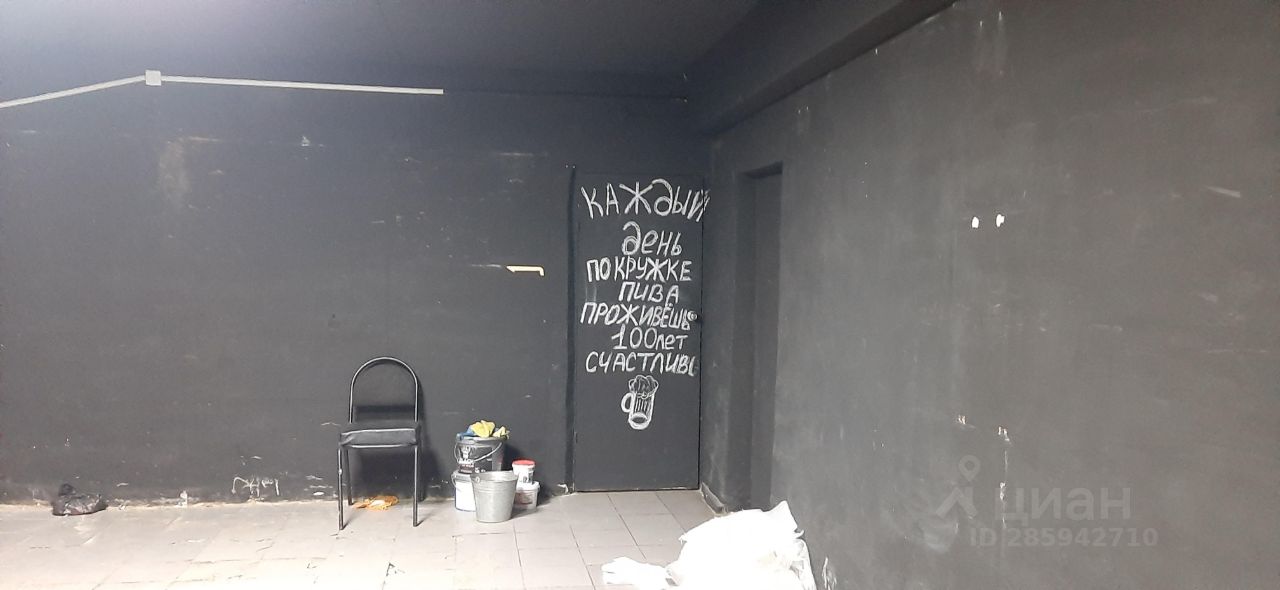 КАЖДЫЙ
ДЕНЬ
ПО КРУЖКЕ
ПИВА
ПРОЖИВЁШЬ
100 ЛЕТ
СЧАСТЛИВЫ
циан
ID 285942710